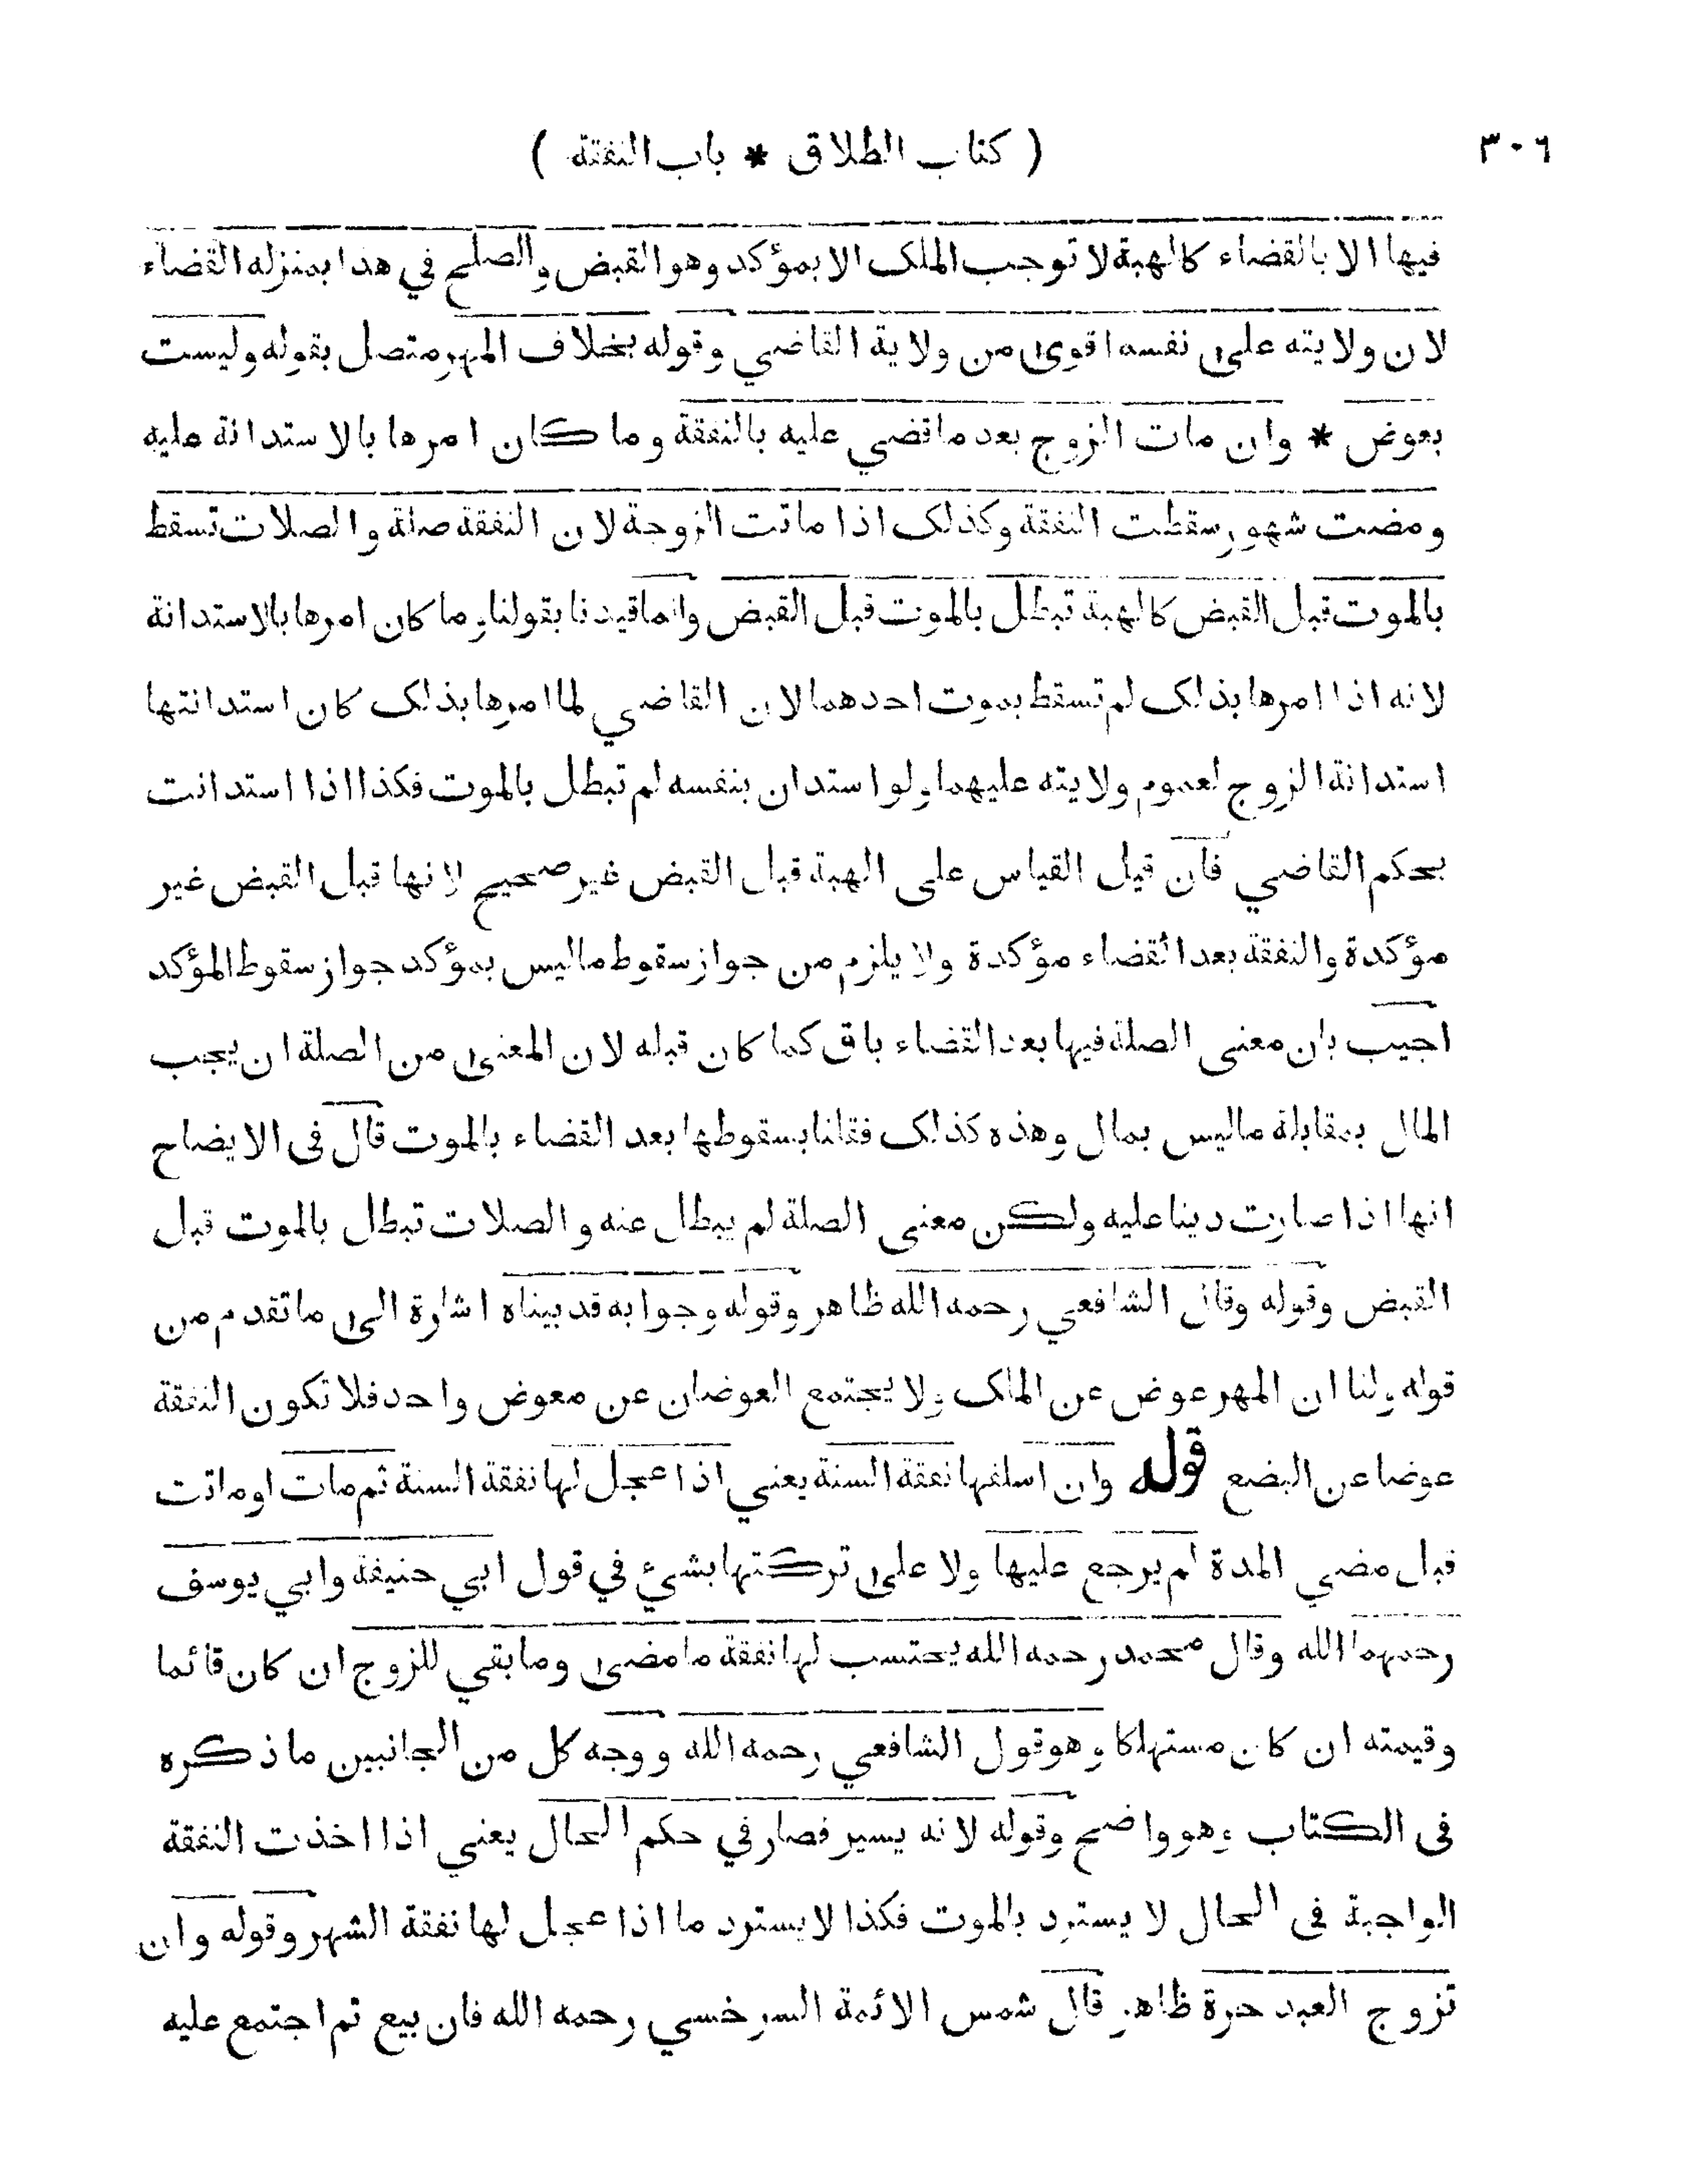 ٣٠٦
( كتاب الطلاق * باب النفقة )
فيها الا بالقضاء كالهبة لا توجب الملك الا بمؤكد وهو القبض والصلح في هذا بمنزله القضاء
لان ولايته على نفسه اقوى من ولاية القاضي وقوله بخلاف المهر متصل بقوله وليست
بعوض * وان مات الزوج بعد ما قضي عليه بالنفقة وما كان امرها بالاستدانة عليه
ومضت شهور سقطت النفقة وكذلك اذا ماتت الزوجة لان النفقة صلة والصلات تسقط
بالموت قبل القبض كالهبة تبطل بالموت قبل القبض وانما قيدنا بقولنا وما كان امرها بالاستدانة
لانه اذا امرها بذلك لم تسقط بموت احدهما لان القاضي لما امرها بذلك كان استدانتها
استدانة الزوج لعموم ولايته عليهما ولو استدان بنفسه لم تبطل بالموت فكذا اذا استدانت
بحكم القاضي فان قيل القياس على الهبة قبل القبض غير صحيح لانها قبل القبض غير
مؤكدة والنفقة بعد القضاء مؤكدة ولا يلزم من جواز سقوط ما ليس بمؤكد جواز سقوط المؤكد
اجيب بان معنى الصلة فيها بعد القضاء باق كما كان قبله لان المعنى من الصلة ان يجب
المال بمقابلة ما ليس بمال وهذه كذلك فقلنا بسقوطها بعد القضاء بالموت قال فى الايضاح
انها اذا صارت دينا عليه ولكن معنى الصلة لم يبطل عنه والصلات تبطل بالموت قبل
القبض وقوله وقال الشافعي رحمه الله ظاهر وقوله وجوابه قد بيناه اشارة الى ما تقدم من
قوله ولنا ان المهر عوض عن الملك ولا يجتمع العوضان عن معوض واحد فلا تكون النفقة
عوضا عن البضع قوله وان اسلفها نفقة السنة يعني اذا عجل لها نفقة السنة ثم مات او ماتت
قبل مضي المدة لم يرجع عليها ولا على تركتها بشئ في قول ابي حنيفة وابي يوسف
رحمهما الله وقال محمد رحمه الله يحتسب لها نفقة ما مضى وما بقي للزوج ان كان قائما
وقيمته ان كان مستهلكا وهو قول الشافعي رحمه الله ووجه كل من الجانبين ما ذكره
فى الكتاب وهو واضح وقوله لانه يسير فصار في حكم الحال يعني اذا اخذت النفقة
الواجبة فى الحال لا يسترد بالموت فكذا لا يسترد ما اذا عجل لها نفقة الشهر وقوله وان
تزوج العبد حرة ظاهر قال شمس الائمة السرخسي رحمه الله فان بيع ثم اجتمع عليه